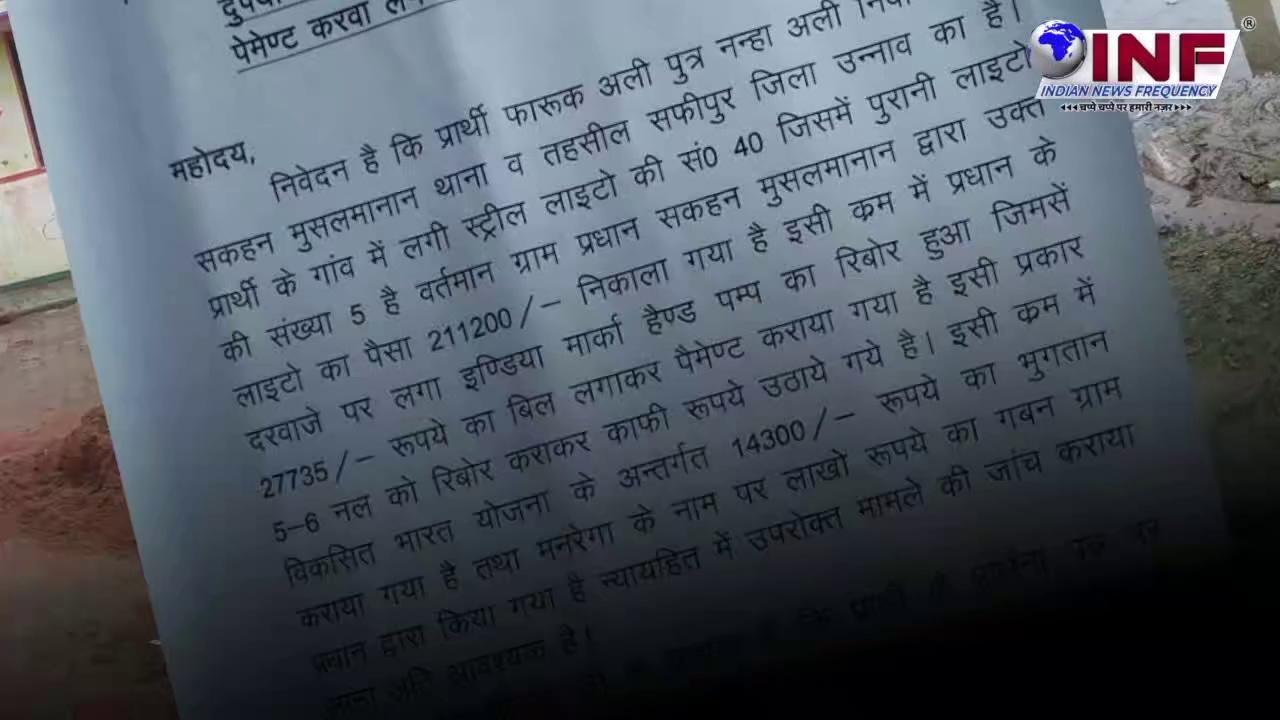 पेमेण्ट करवा
महोदय,
निवेदन है कि प्रार्थी फारूक अली पुत्र नन्हा अली
सकहन मुसलमानान थाना व तहसील सफीपुर जिला उन्नाव का है।
प्रार्थी के गांव में लगी स्ट्रील लाइटो की सं0 40 जिसमें पुरानी लाइटो
की संख्या 5 है वर्तमान ग्राम प्रधान सकहन मुसलमानान द्वारा उक्त
लाइटो का पैसा 211200/- निकाला गया है इसी क्रम में प्रधान के
दरवाजे पर लगा इण्डिया मार्का हैण्ड पम्प का रिबोर हुआ जिमसें
27735/- रूपये का बिल लगाकर पैमेण्ट कराया गया है इसी प्रकार
5-6 नल को रिबोर कराकर काफी रूपये उठाये गये है। इसी क्रम में
विकसित भारत योजना के अन्तर्गत 14300/- रूपये का भुगतान
कराया गया है तथा मनरेगा के नाम पर लाखो रूपये का गबन ग्राम
प्रधान द्वारा किया गया है न्यायहित में उपरोक्त मामले की जांच कराया
जाना अति आवश्यक है।
INF
®
INDIAN NEWS FREQUENCY
चप्पे चप्पे पर हमारी नज़र